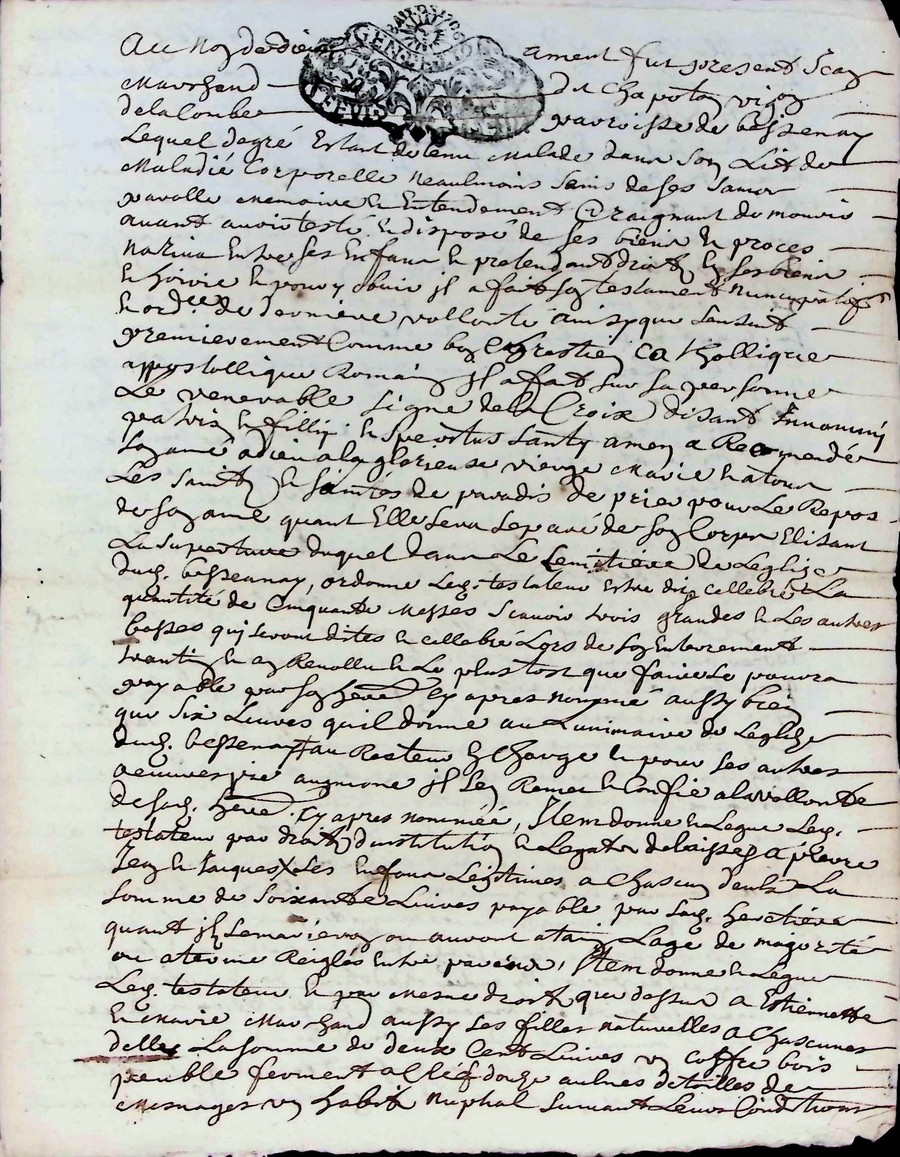 Au Nom de Dieu ament fut present Jean
Marchand dit Chapotton vigon
de la Combe parroisse de bessenay
Lequel de gré Estant detenu Malade dans Son Lit de
Maladie Corporelle Neaulmoins Sain de ses Sance
parolle memoire et Entendement Craignant de mourir
avant avoir testé et disposé de ses biens et proces
naitre Entre ses Enfans et pretendant droits en ses biens
et hoirie et pour y obvier il a fait son testament Nuncupatif
et ordce de derniere vollonté ainsy que sensuit
premierement Comme bon Chrestien Catholique
appostollique Romain il a fait sur sa personne
Le venerable Signe de la Croix disant Innomini
patris et fillij et Speritus Santy amen a Recomandé
son ame a dieu a la glorieuse vierge Marie et a tous
Les Saints et Saintes de paradis de prier pour Le Repos
de son ame quant Elle sera separé de son Corps Elisant
La Supesture duquel dans Le Cemitiere de Leglize
dud. bessenay, ordonne Led. testateur Estre dit cellebré La
quantité de Cinquante Messes Scavoir trois grandes et Les autres
basses qui seront dites et cellebré Lors de son Enterrement
trantin et an Revollu et Le plus tost que faire Se pourra
payable par son here Cy apres nommé aussy bien
que Six Livres quil donne au Luminaire de Leglize
dud. bessenay au Recteur En Charge et pour les autres
aeuvres pie aumone il sen Remet et Confie a la vollonte
de sad. here. Cy apres nommée, Item donne et Legue Led.
testateur par droit dinstitution et Legat delaisse a pierre
Jean et Jacques Ses Enfans Legitimes a Chascun deulx La
somme de Soixante Livres payable par sad. heretiere
quant ils Se marieron ou auront atain Lage de majorité
ou a terme Reiglés Entre parans, Item donne et Legue
Led. testateur et par mesme droit que dessus a Estiennette
et Marie Marchand aussy Ses filles naturelles a Chascunes
delles La somme de deux Cent Livres un coffre bois
fermant a Clef douze aulnes de toilles de
Mesnages un habit Nuptial Suivant Leurs Conditions